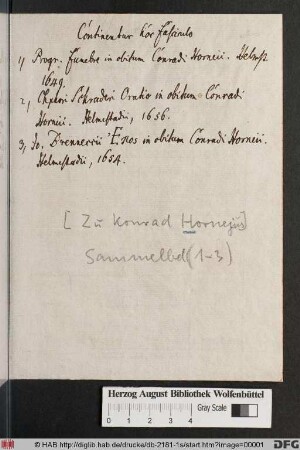 Continentur hoc fasciculo
1) Progr. funebre in obitum Conradi Horneii. Helmst.
1649.
2, Chphori Schraderi Oratio in obitum Conradi
Horneii. Helmestadii, 1656.
3, Jo. in obitum Conradi Horneii.
Helmestadii, 1654.
[Zu Konrad Hornejus]
Sammelbd (1-3)
Herzog August Bibliothek Wolfenbüttel
0 1 2 3 4
Gray Scale
© HAB http://diglib.hab.de/drucke/db-2161-1s/start.htm?image=00001
DFG